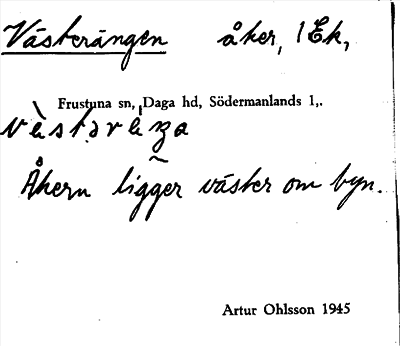 Västerängen åker, 1 Ek,
Frustuna sn, Daga hd, Södermanlands l,.
Åkern ligger väster om byn.
Artur Ohlsson 1945